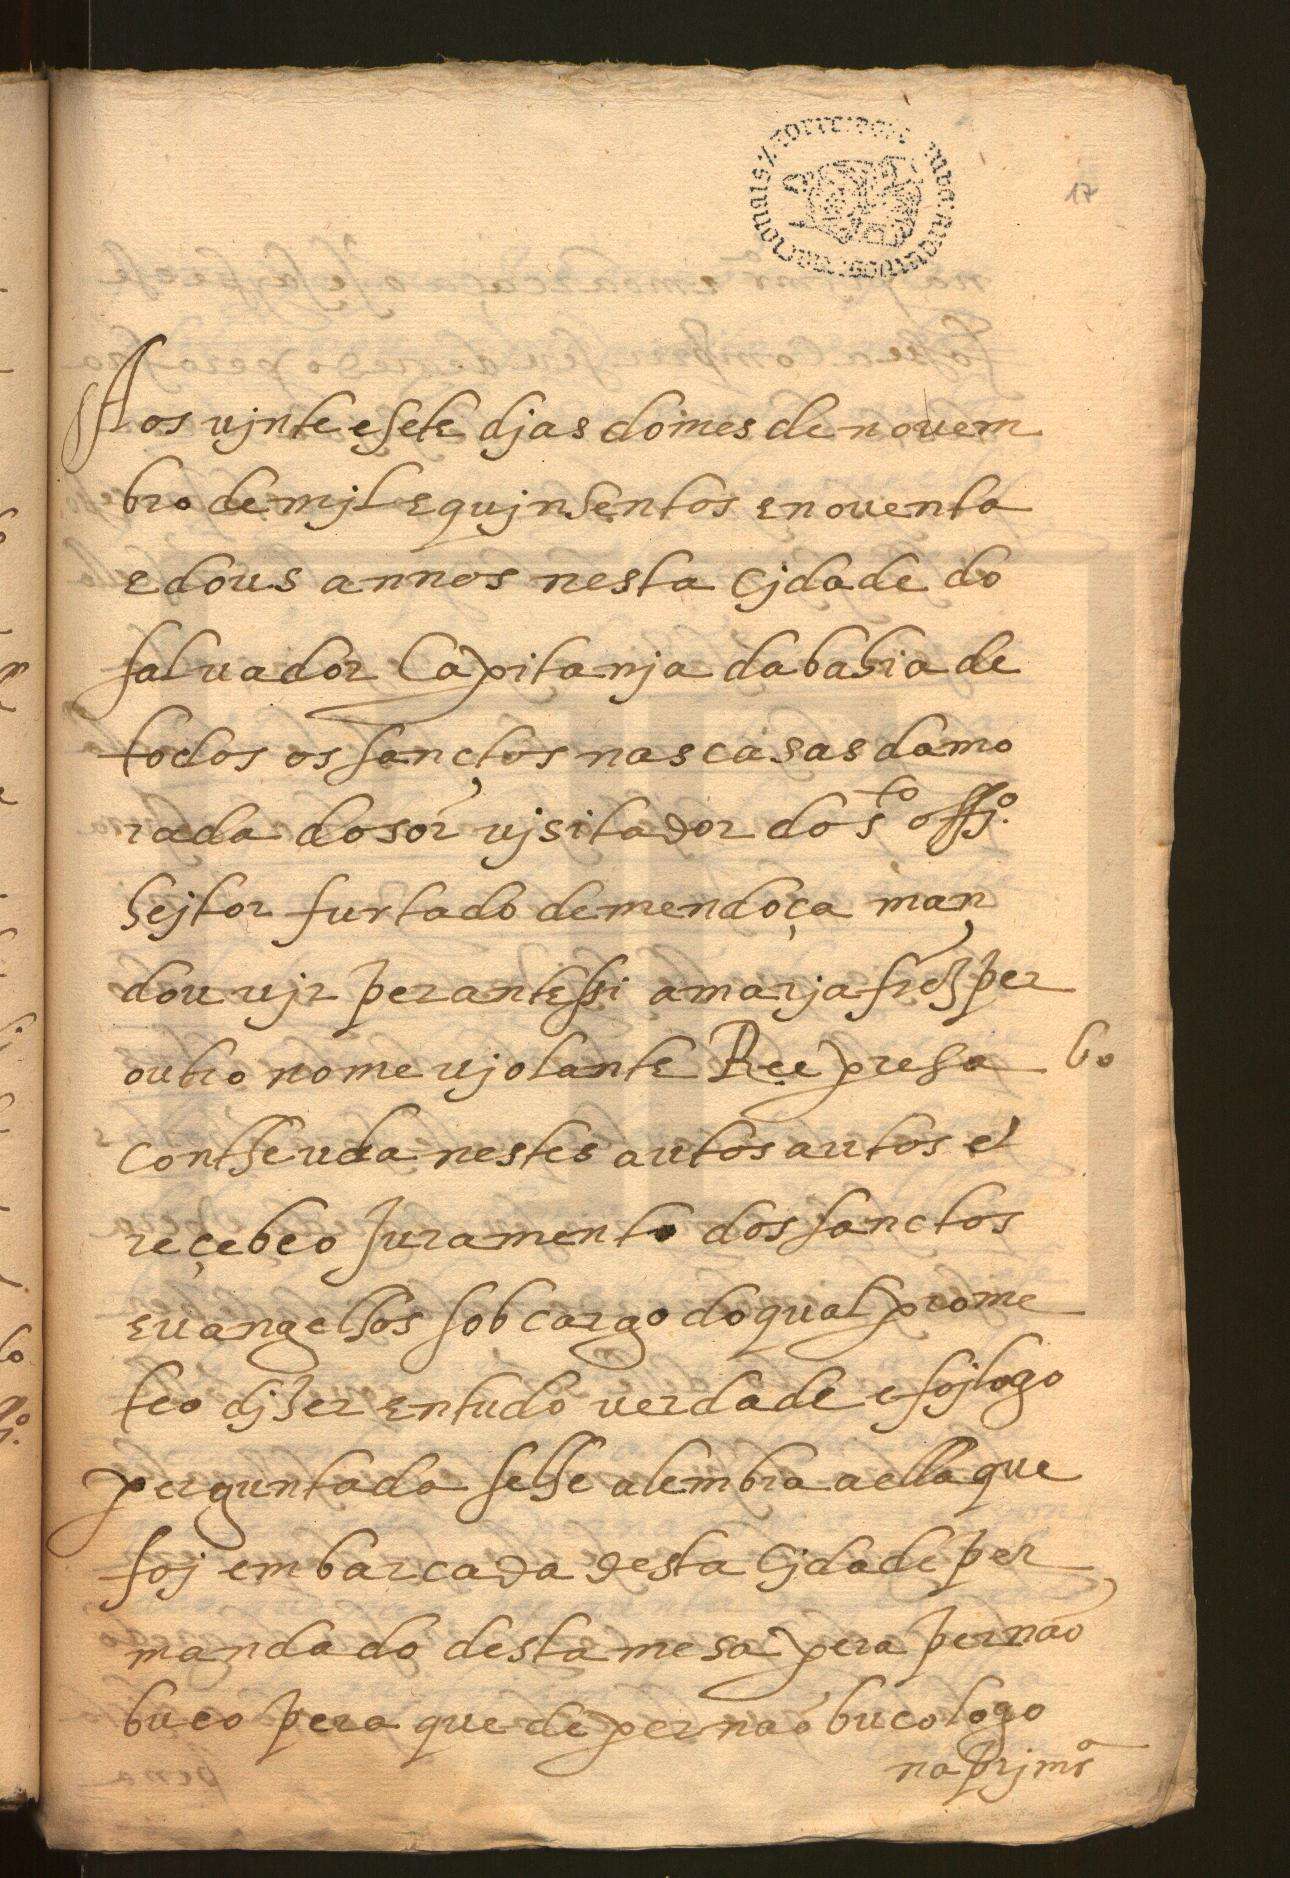 17
Aos vjnte e sete djas do mes de novem
bro de mjl e qujnhentos e noventa
e dous annos nesta Cjdade do
salvador Capitanja da bahia de
todos os sanctos nas casas da mo
rada do sor vjsitador do sto offjo.
hejtor furtado de mendoça man
dou vjr perante ssi a marja frz per
outro nome vjolante Ree presa
contheuda nestes autos autos e
reçebeo juramento dos sanctos
evangelhos sob cargo do qual prome
teo djzer en tudo verdade e foj logo
perguntada se lhe alembra a ella que
foj embarcada desta Cjdade per
mandado desta mesa pera pernão
buco pera que de pernão buco logo
na prjmra